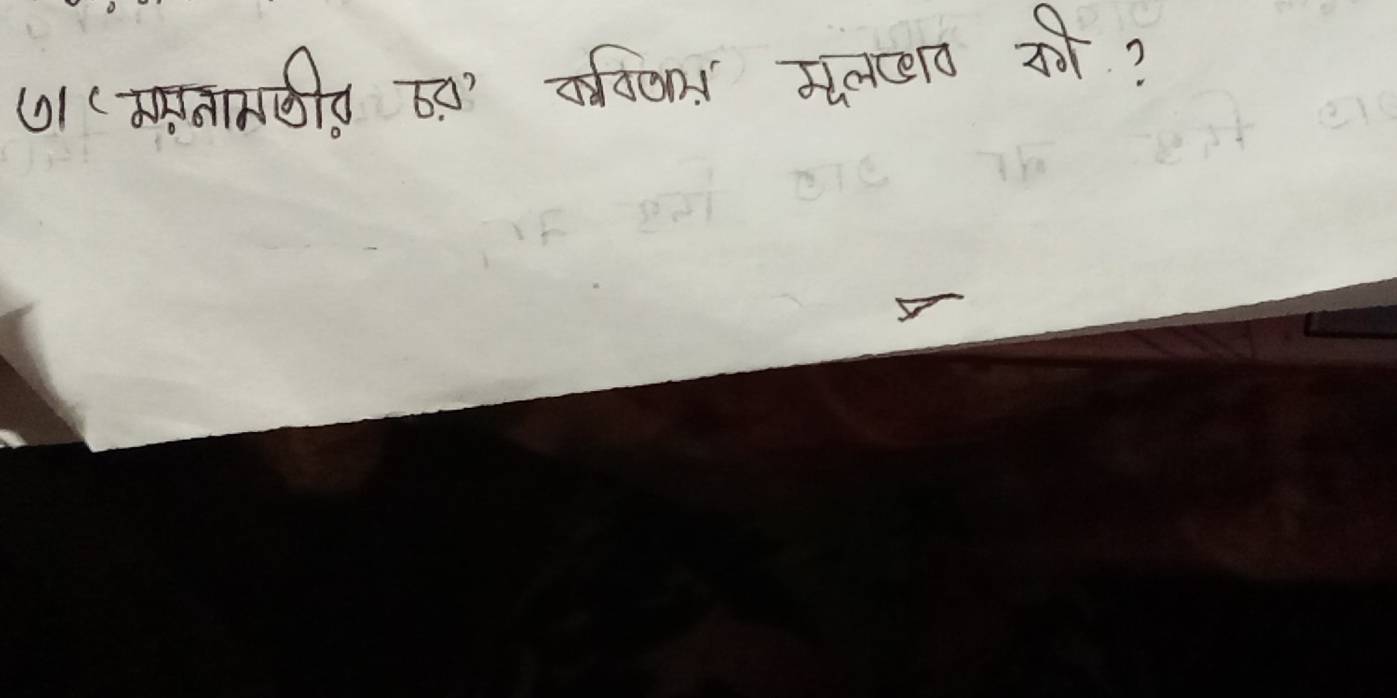 ৩। ‘ময়নামতীর চর’ কবিতায় মূলভাব কী ?